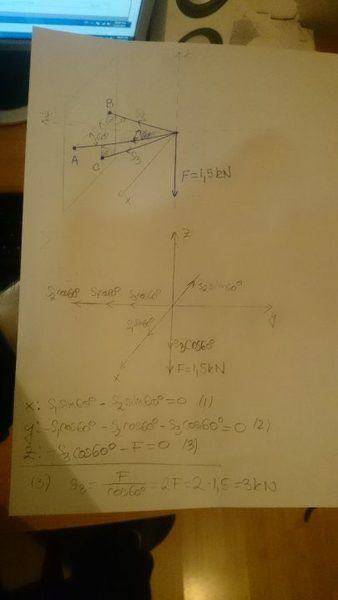 z
B
S₂
60°
A
C
S₃
x
F=1,5kN
z
S₂sin60°
S₃cos60° S₂cos60° S₁cos60°
y
S₁sin60°
S₃cos60°
F=1,5kN
x
x: S₁sin60° - S₂sin60° = 0 (1)
y: -S₁cos60° - S₂cos60° - S₃cos60° = 0 (2)
z: -S₃cos60° - F = 0 (3)
(3) S₃ = F/cos60° = 2F = 2·1,5 = 3kN